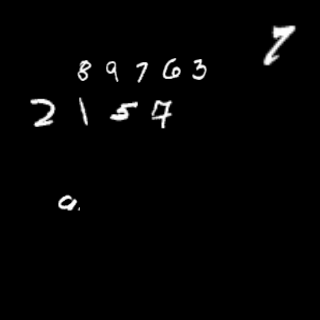 7
8 9 7 6 3
2 1 5 7
a.